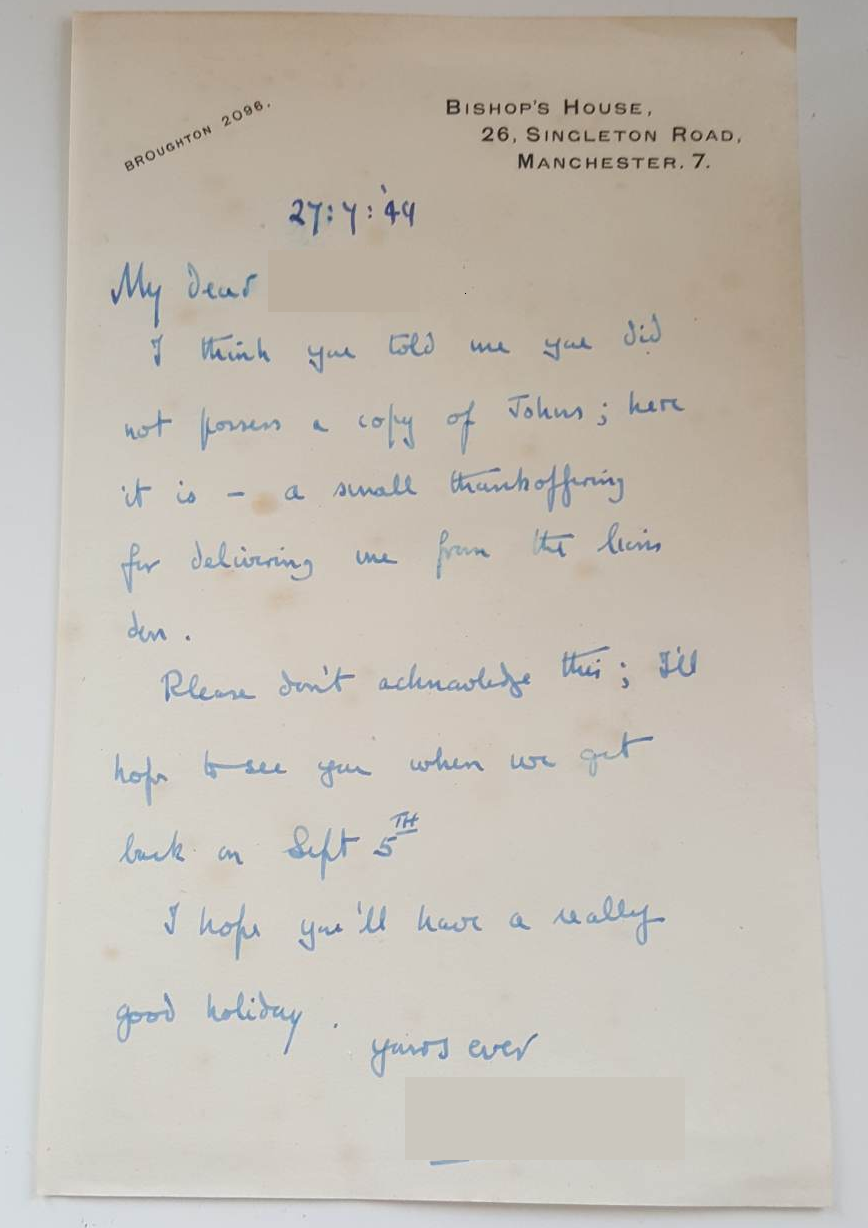 BROUGHTON 2096.
BISHOP'S HOUSE,
26, SINGLETON ROAD,
MANCHESTER. 7.
27:7:'44
My dear
I think you told me you did
not possess a copy of Johns; here
it is - a small thankoffering
for delivering me from the lions
den.
Please don't acknowledge this; I'll
hope to see you when we get
back on Sept 5TH
I hope you'll have a really
good holiday.
yours ever